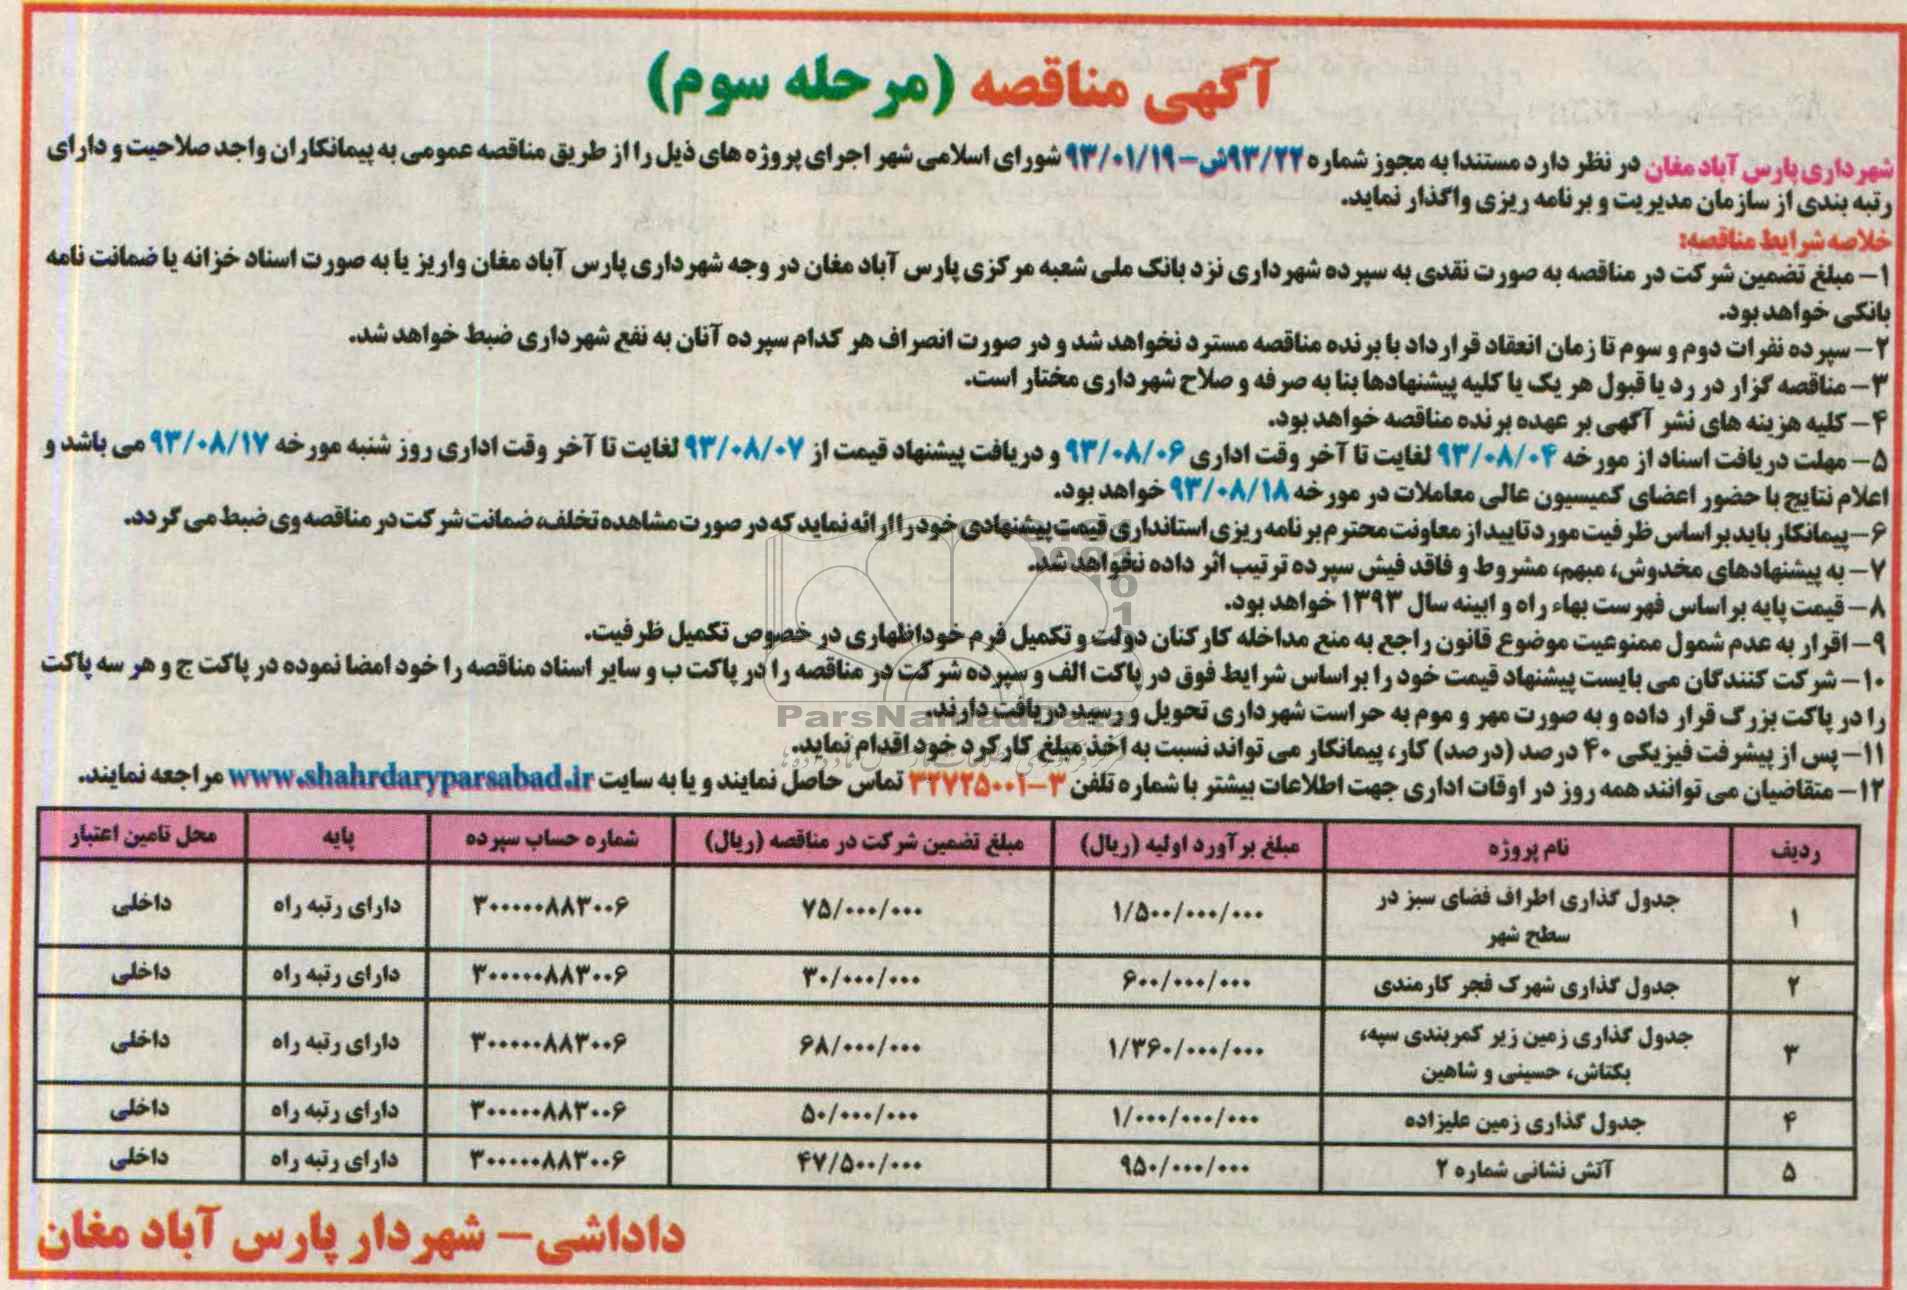 آگهی مناقصه (مرحله سوم)
شهرداری پارس آباد مغان در نظر دارد مستندا به مجوز شماره ۹۳/۲۲ش-۹۳/۰۱/۱۹ شورای اسلامی شهر اجرای پروژه های ذیل را از طریق مناقصه عمومی به پیمانکاران واجد صلاحیت و دارای
رتبه بندی از سازمان مدیریت و برنامه ریزی واگذار نماید.
خلاصه شرایط مناقصه:
۱- مبلغ تضمین شرکت در مناقصه به صورت نقدی به سپرده شهرداری نزد بانک ملی شعبه مرکزی پارس آباد مغان در وجه شهرداری پارس آباد مغان واریز یا به صورت اسناد خزانه یا ضمانت نامه
بانکی خواهد بود.
۲- سپرده نفرات دوم و سوم تا زمان انعقاد قرارداد با برنده مناقصه مسترد نخواهد شد و در صورت انصراف هر کدام سپرده آنان به نفع شهرداری ضبط خواهد شد.
۳- مناقصه گزار در رد یا قبول هر یک یا کلیه پیشنهادها بنا به صرفه و صلاح شهرداری مختار است.
۴- کلیه هزینه های نشر آگهی بر عهده برنده مناقصه خواهد بود.
۵- مهلت دریافت اسناد از مورخه ۹۳/۰۸/۰۴ لغایت تا آخر وقت اداری ۹۳/۰۸/۰۶ و دریافت پیشنهاد قیمت از ۹۳/۰۸/۰۷ لغایت تا آخر وقت اداری روز شنبه مورخه ۹۳/۰۸/۱۷ می باشد و
اعلام نتایج با حضور اعضای کمیسیون عالی معاملات در مورخه ۹۳/۰۸/۱۸ خواهد بود.
۶- پیمانکار باید براساس ظرفیت مورد تایید از معاونت محترم برنامه ریزی استانداری قیمت پیشنهادی خود را ارائه نماید که در صورت مشاهده تخلف، ضمانت شرکت در مناقصه وی ضبط می گردد.
۷- به پیشنهادهای مخدوش، مبهم، مشروط و فاقد فیش سپرده ترتیب اثر داده نخواهد شد.
۸- قیمت پایه براساس فهرست بهاء راه و ابینه سال ۱۳۹۳ خواهد بود.
۹- اقرار به عدم شمول ممنوعیت موضوع قانون راجع به منع مداخله کارکنان دولت و تکمیل فرم خوداظهاری در خصوص تکمیل ظرفیت.
۱۰- شرکت کنندگان می بایست پیشنهاد قیمت خود را براساس شرایط فوق در پاکت الف و سپرده شرکت در مناقصه را در پاکت ب و سایر اسناد مناقصه را خود امضا نموده در پاکت ج و هر سه پاکت
را در پاکت بزرگ قرار داده و به صورت مهر و موم به حراست شهرداری تحویل و رسید دریافت دارند.
۱۱- پس از پیشرفت فیزیکی ۴۰ درصد (درصد) کار، پیمانکار می تواند نسبت به اخذ مبلغ کارکرد خود اقدام نماید.
۱۲- متقاضیان می توانند همه روز در اوقات اداری جهت اطلاعات بیشتر با شماره تلفن ۳-۳۲۷۲۵۰۰۱ تماس حاصل نمایند و یا به سایت www.shahrdaryparsabad.ir مراجعه نمایند.
ردیف نام پروژه مبلغ برآورد اولیه (ریال) مبلغ تضمین شرکت در مناقصه (ریال) شماره حساب سپرده پایه محل تامین اعتبار
۱ جدول گذاری اطراف فضای سبز در ۱/۵۰۰/۰۰۰/۰۰۰ ۷۵/۰۰۰/۰۰۰ ۳۰۰۰۰۰۸۸۳۰۰۶ دارای رتبه راه داخلی
سطح شهر
۲ جدول گذاری شهرک فجر کارمندی ۶۰۰/۰۰۰/۰۰۰ ۳۰/۰۰۰/۰۰۰ ۳۰۰۰۰۰۸۸۳۰۰۶ دارای رتبه راه داخلی
۳ جدول گذاری زمین زیر کمربندی سپه، ۱/۳۶۰/۰۰۰/۰۰۰ ۶۸/۰۰۰/۰۰۰ ۳۰۰۰۰۰۸۸۳۰۰۶ دارای رتبه راه داخلی
بکتاش، حسینی و شاهین
۴ جدول گذاری زمین علیزاده ۱/۰۰۰/۰۰۰/۰۰۰ ۵۰/۰۰۰/۰۰۰ ۳۰۰۰۰۰۸۸۳۰۰۶ دارای رتبه راه داخلی
۵ آتش نشانی شماره ۲ ۹۵۰/۰۰۰/۰۰۰ ۴۷/۵۰۰/۰۰۰ ۳۰۰۰۰۰۸۸۳۰۰۶ دارای رتبه راه داخلی
داداشی- شهردار پارس آباد مغان